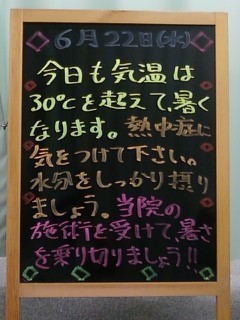 6月22日(水)
今日も気温は
30℃を超えて、暑く
なります。熱中症に
気をつけて下さい。
水分をしっかり摂り
ましょう。当院の
施術を受けて、暑さ
を乗り切りましょう!!